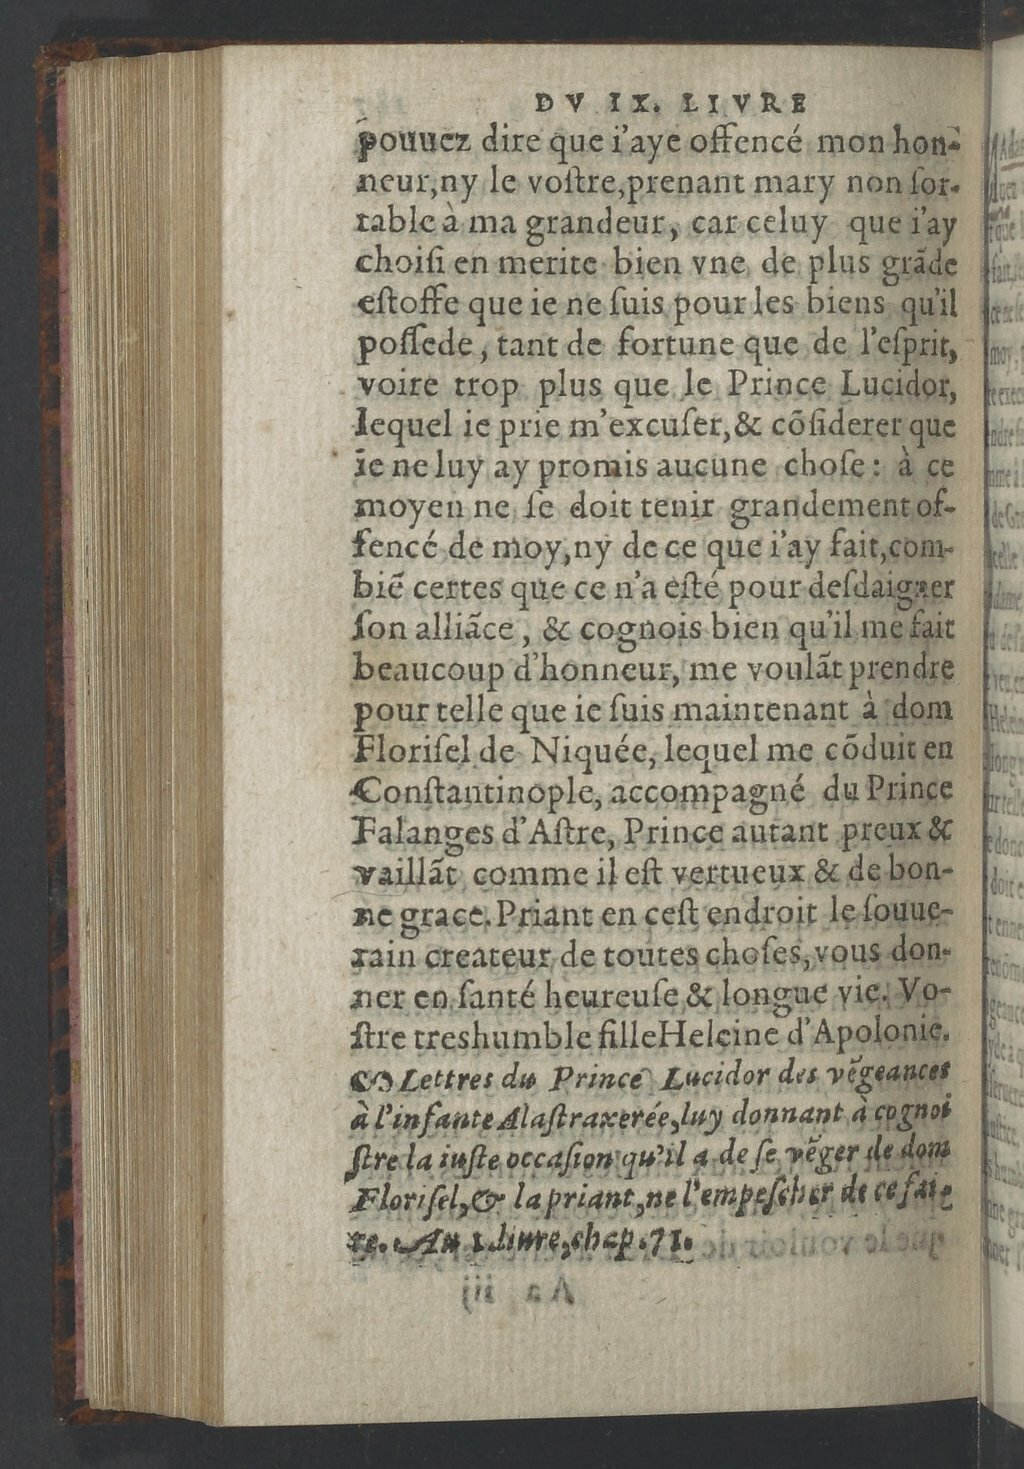 DV IX. LIVRE
pouuez dire que i'aye offencé mon hon-
neur, ny le voſtre, prenant mary non ſor-
table à ma grandeur, car celuy que i'ay
choiſi en merite bien vne de plus grãde
eſtoffe que ie ne ſuis pour les biens qu'il
poſſede, tant de fortune que de l'eſprit,
voire trop plus que le Prince Lucidor,
lequel ie prie m'excuſer, & cõſiderer que
ie ne luy ay promis aucune choſe: à ce
moyen ne ſe doit tenir grandement of-
fencé de moy, ny de ce que i'ay fait, com-
biẽ certes que ce n'a eſté pour deſdaigner
ſon alliãce, & cognois bien qu'il me fait
beaucoup d'honneur, me voulãt prendre
pour telle que ie ſuis maintenant à dom
Floriſel de Niquée, lequel me cõduit en
Conſtantinople, accompagné du Prince
Falanges d'Aſtre, Prince autant preux &
vaillãt comme il eſt vertueux & de bon-
ne grace. Priant en ceſt endroit le ſouue-
rain createur de toutes choſes, vous don-
ner en ſanté heureuſe & longue vie. Vo-
ſtre treshumble fille Heleine d'Apolonie.
Lettres du Prince Lucidor des vẽgeances
à l'infante Alaſtraxerée, luy donnant à cognoi
ſtre la iuſte occaſion qu'il a de ſe vẽger de dom
Floriſel, & la priant, ne l'empeſcher de ce fai-
re. Au 1. liure, chap. 71.